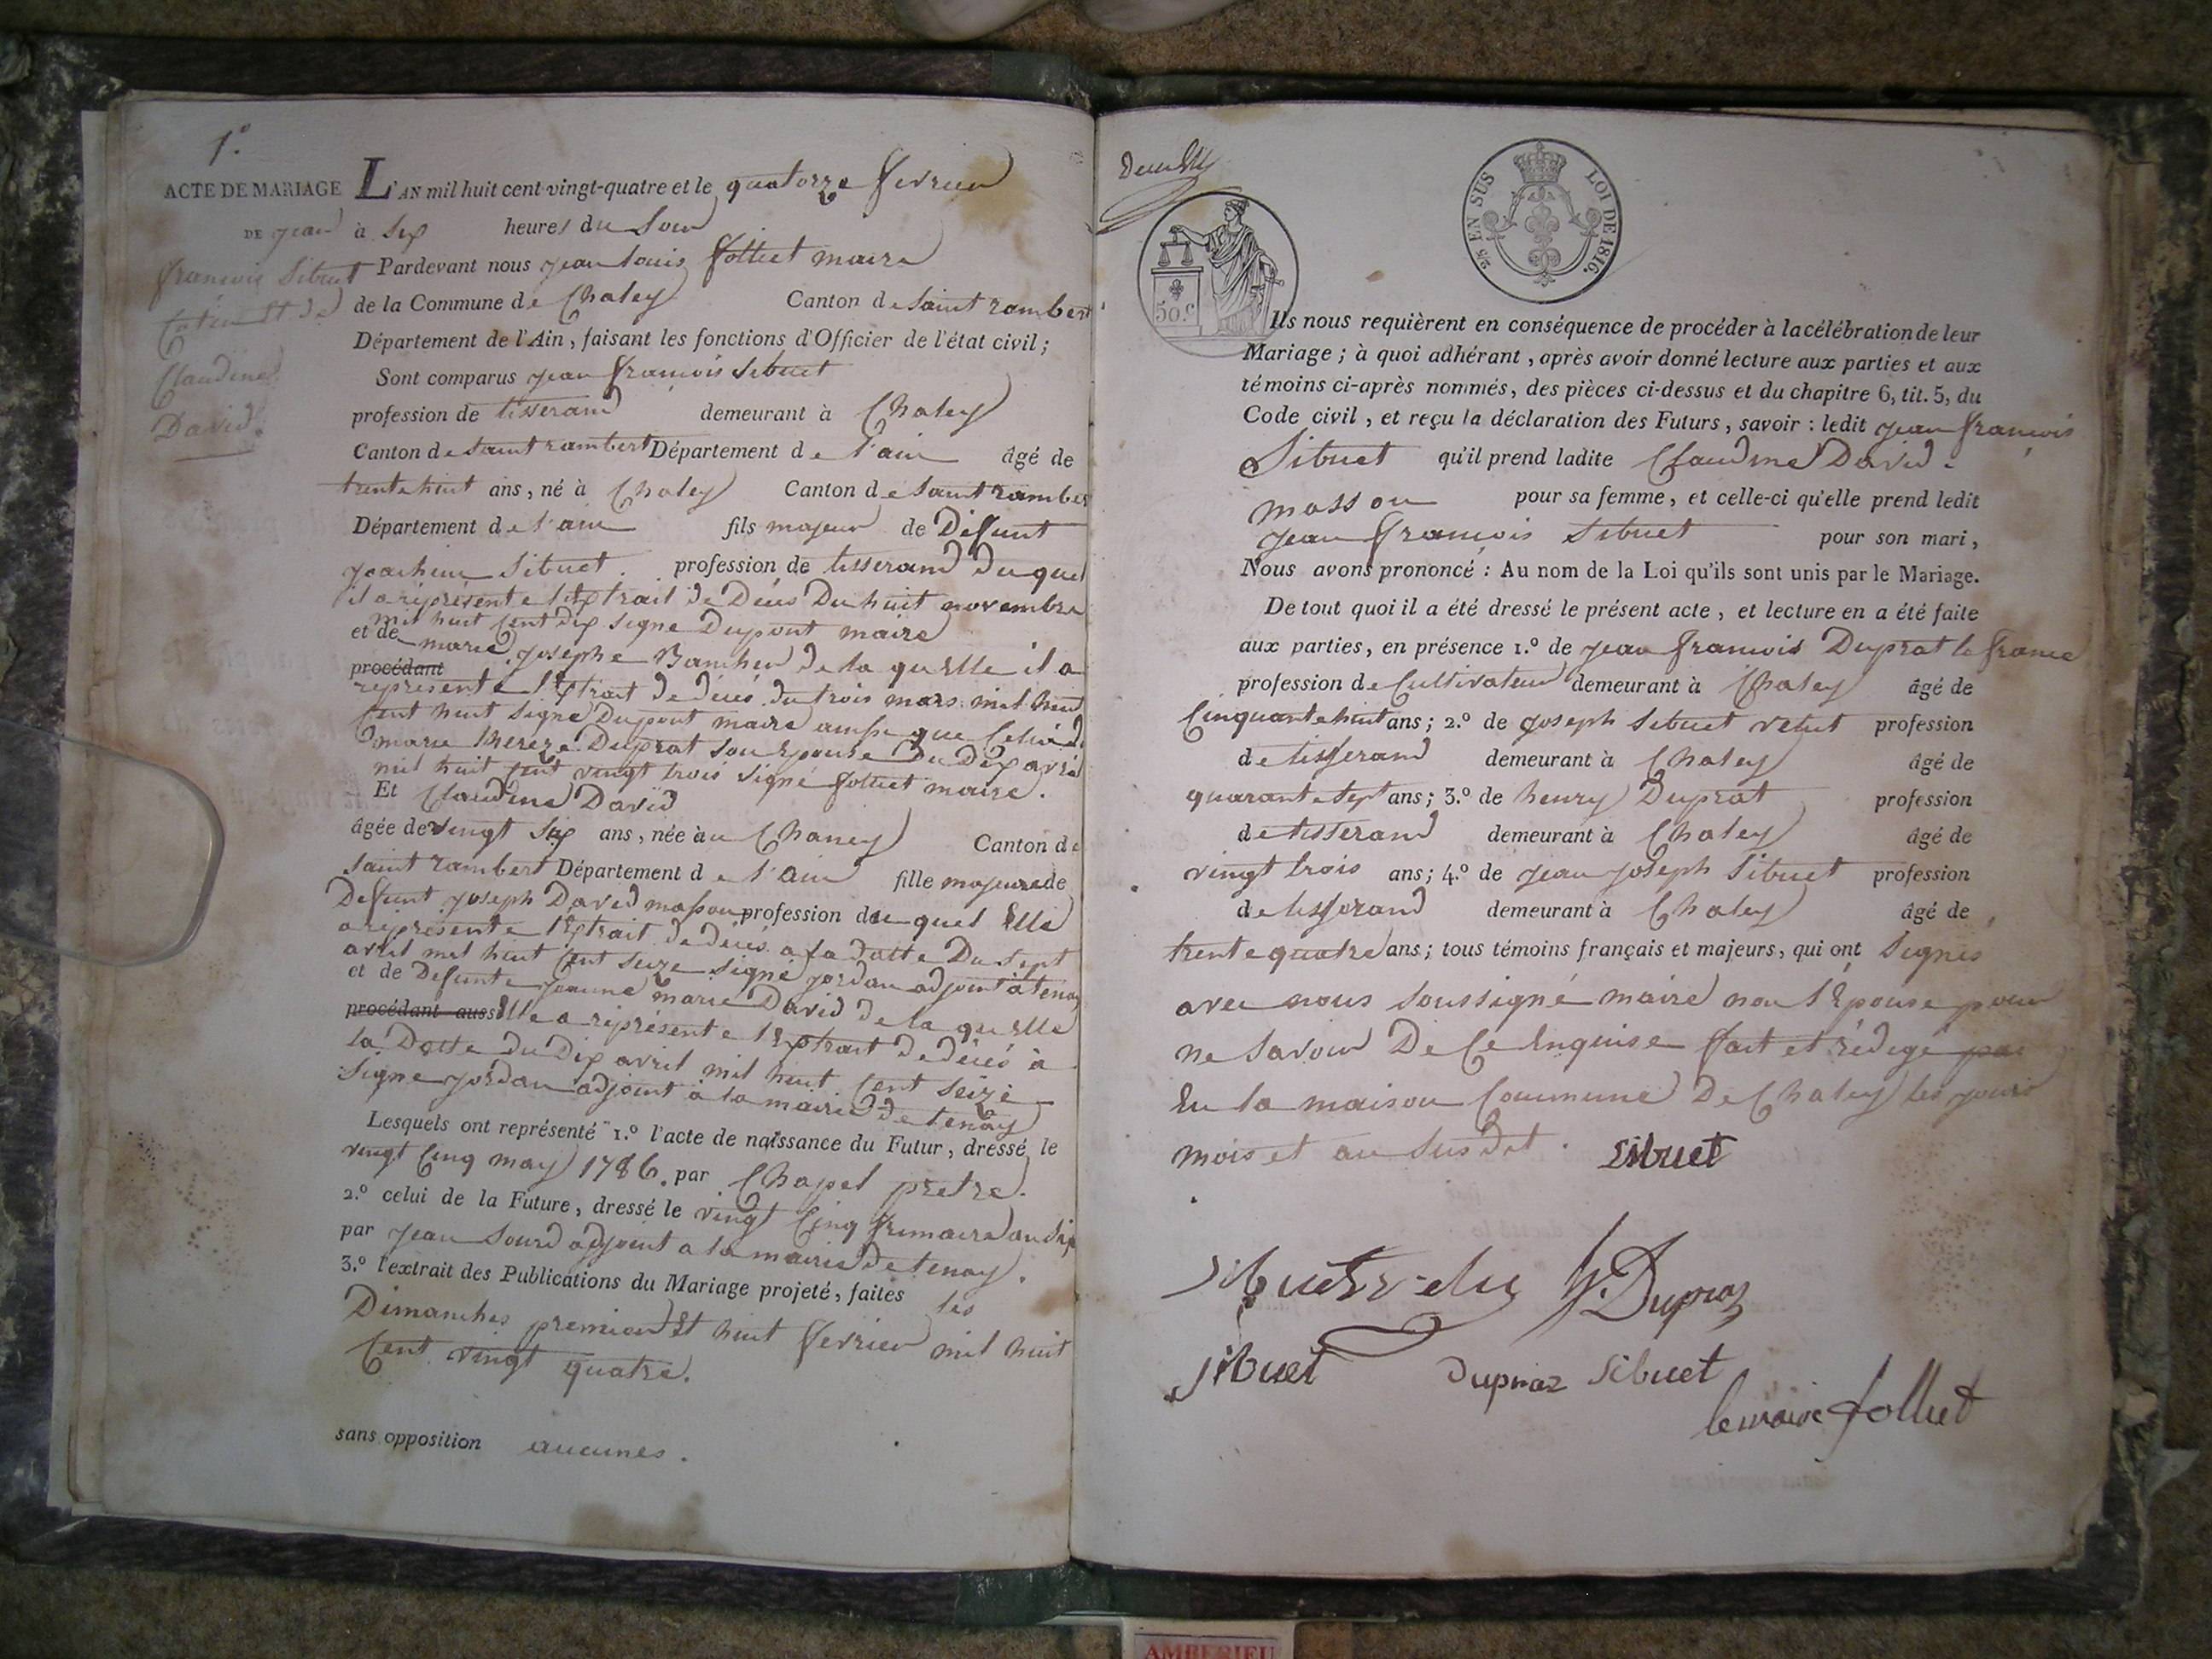 1.°
ACTE DE MARIAGE
DE jean
françois Sibuet
Et de
Claudine
David.
L'AN mil huit cent vingt-quatre et le quatorze fevrier
à Six heures du Soir
Pardevant nous jean louis folliet maire
de la Commune de Chaley Canton de Saint rambert
Département de l'Ain, faisant les fonctions d'Officier de l'état civil;
Sont comparus jean françois Sibuet
profession de tisserand demeurant à Chaley
Canton de Saint rambert Département de l'ain âgé de
trente huit ans, né à Chaley Canton de Saint rambert
Département de l'ain fils majeur de Défunt
joachim Sibuet. profession de tisserand duquel
il a représenté l'Extrait de Décès Du huit novembre
mil huit Cent dix signé Dupont maire
et de marie josephe Bancher de la quelle il a
procédant
représenté l'Extrait de décès du trois mars mil huit
Cent huit Signé Dupont maire ainsi que Celui d.
marie thereze Duprat Son Epouse Du Dix avril
mil huit Cent vingt trois signé folliet maire.
Et Claudine David
âgée de vingt Six ans, née à au Chaney Canton de
Saint rambert Département de l'ain fille majeure de
Défunt joseph David masson profession de du quel Elle
a représenté l'Extrait de décès a la datte Du Sept
avril mil huit Cent Seize signé jordan adjoint à tenay
et de Défunte jeanne marie David de la quelle
procédant aussi Elle a représenté l'Extrait de décès à
la Datte du Dix avril mil huit Cent Seize
Signé jordan adjoint à la mairie de tenay
Lesquels ont représenté 1.° l'acte de naissance du Futur, dressé le
vingt Cinq may 1786. par Chapel pretre.
2.° celui de la Future, dressé le vingt Cinq frimaire an Six
par jean Sourd adjoint a la mairie de tenay.
3.° l'extrait des Publications du Mariage projeté, faites les
Dimanches premier Et huit fevrier mil huit
Cent vingt quatre.
sans opposition aucunes.
50.C
25 EN SUS LOI DE 1816.
Ils nous requièrent en conséquence de procéder à la célébration de leur
Mariage; à quoi adhérant, après avoir donné lecture aux parties et aux
témoins ci-après nommés, des pièces ci-dessus et du chapitre 6, tit. 5, du
Code civil, et reçu la déclaration des Futurs, savoir: ledit jean françois
Sibuet qu'il prend ladite Claudine David-
masson pour sa femme, et celle-ci qu'elle prend ledit
jean françois Sibuet pour son mari,
Nous avons prononcé: Au nom de la Loi qu'ils sont unis par le Mariage.
De tout quoi il a été dressé le présent acte, et lecture en a été faite
aux parties, en présence 1.° de jean francois Duprat la france
profession de Cultivateur demeurant à Chaley âgé de
Cinquante huit ans; 2.° de joseph Sibuet velut profession
de tisserand demeurant à Chaley âgé de
quarante sept ans; 3.° de henry Duprat profession
de tisserand demeurant à Chaley âgé de
vingt trois ans; 4.° de jean joseph Sibuet profession
de tisserand demeurant à Chaley âgé de
trente quatre ans; tous témoins français et majeurs, qui ont Signés
avec nous Soussigné maire non l'Epouse pour
ne Savoir De Ce Enquise fait et rédigé par
En la maison Commune De Chaley les jours
mois et an Susdit. Sibuet
h. Dupraz
Sibuet Dupraz Sibuet
le maire folliet
AMBERIEU